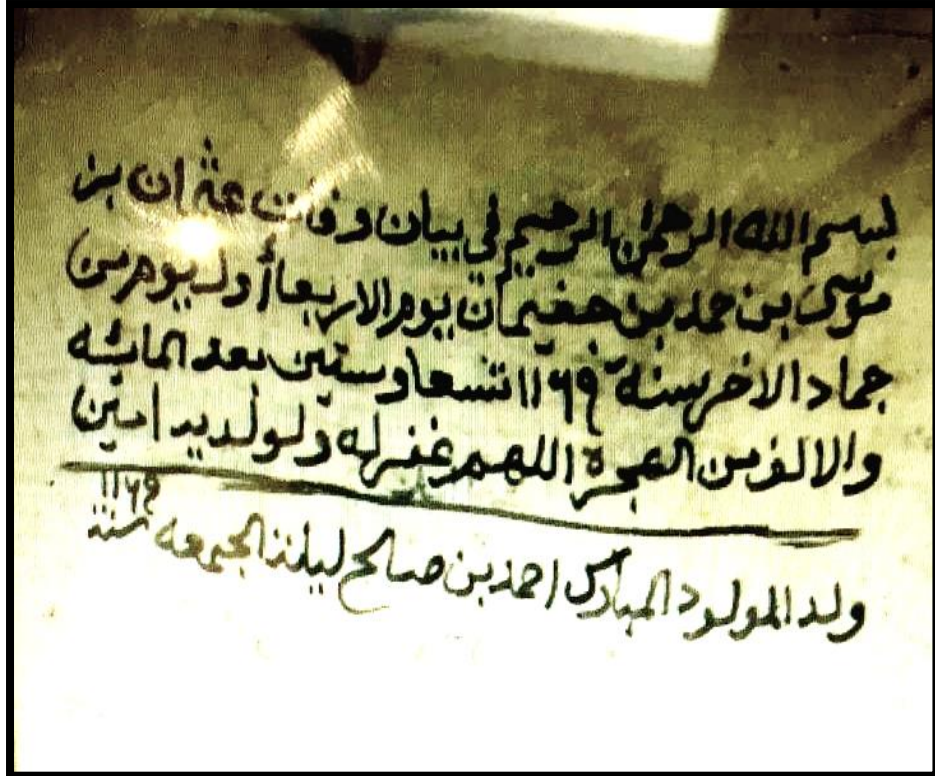 بسم الله الرحمن الرحيم في بيان وفات عثمان بن
موسى بن حمد بن جغيمان يوم الاربعا أول يوم من
جماد الاخر سنة ١١٦٩ تسعا وستين بعد المائه
والالف من الهجرة اللهم غفر له ولولديه امين
ولد المولود المبارك احمد بن صالح ليلة الجمعه سنة ١١٦٩